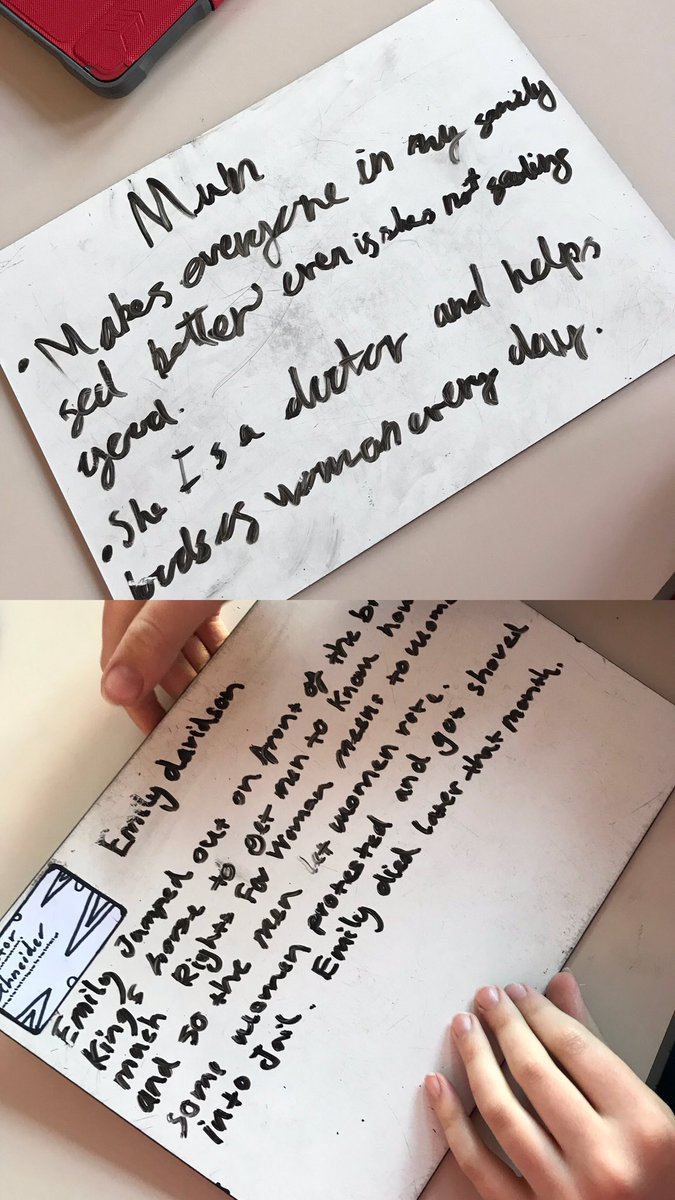 Mum
• Makes everyone in my family
feel better even if shes not feeling
good.
• She Is a doctor and helps
lods of woman every day.
Emily davidson
Emily Jamped out on front of the br
Kings horse to get men to know how
mach Rights For Woman means to wome
and so the men let women vote.
some women protested and got shoved
into Jail. Emily died later that month.
tor
chneider